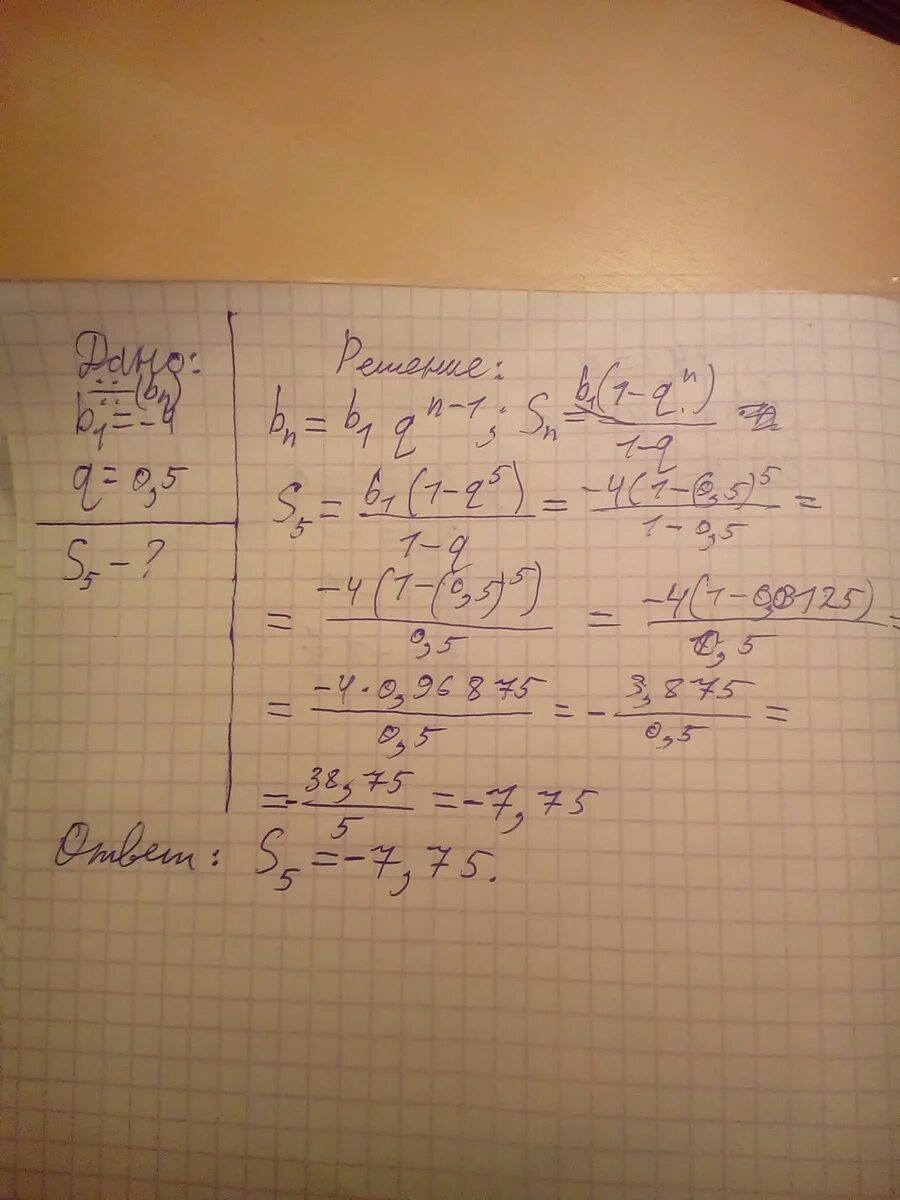 Дано:
÷÷ (bn)
b₁ = -4
q = 0,5
S₅ - ?
Решение:
bₙ = b₁ qⁿ⁻¹; Sₙ = b₁(1-qⁿ)/1-q
S₅ = b₁(1-q⁵)/1-q = -4(1-(0,5)⁵/1-0,5 =
= -4(1-(0,5)⁵)/0,5 = -4(1-0,03125)/0,5 =
= -4·0,96875/0,5 = - 3,875/0,5 =
= - 38,75/5 = -7,75
Ответ: S₅ = -7,75.